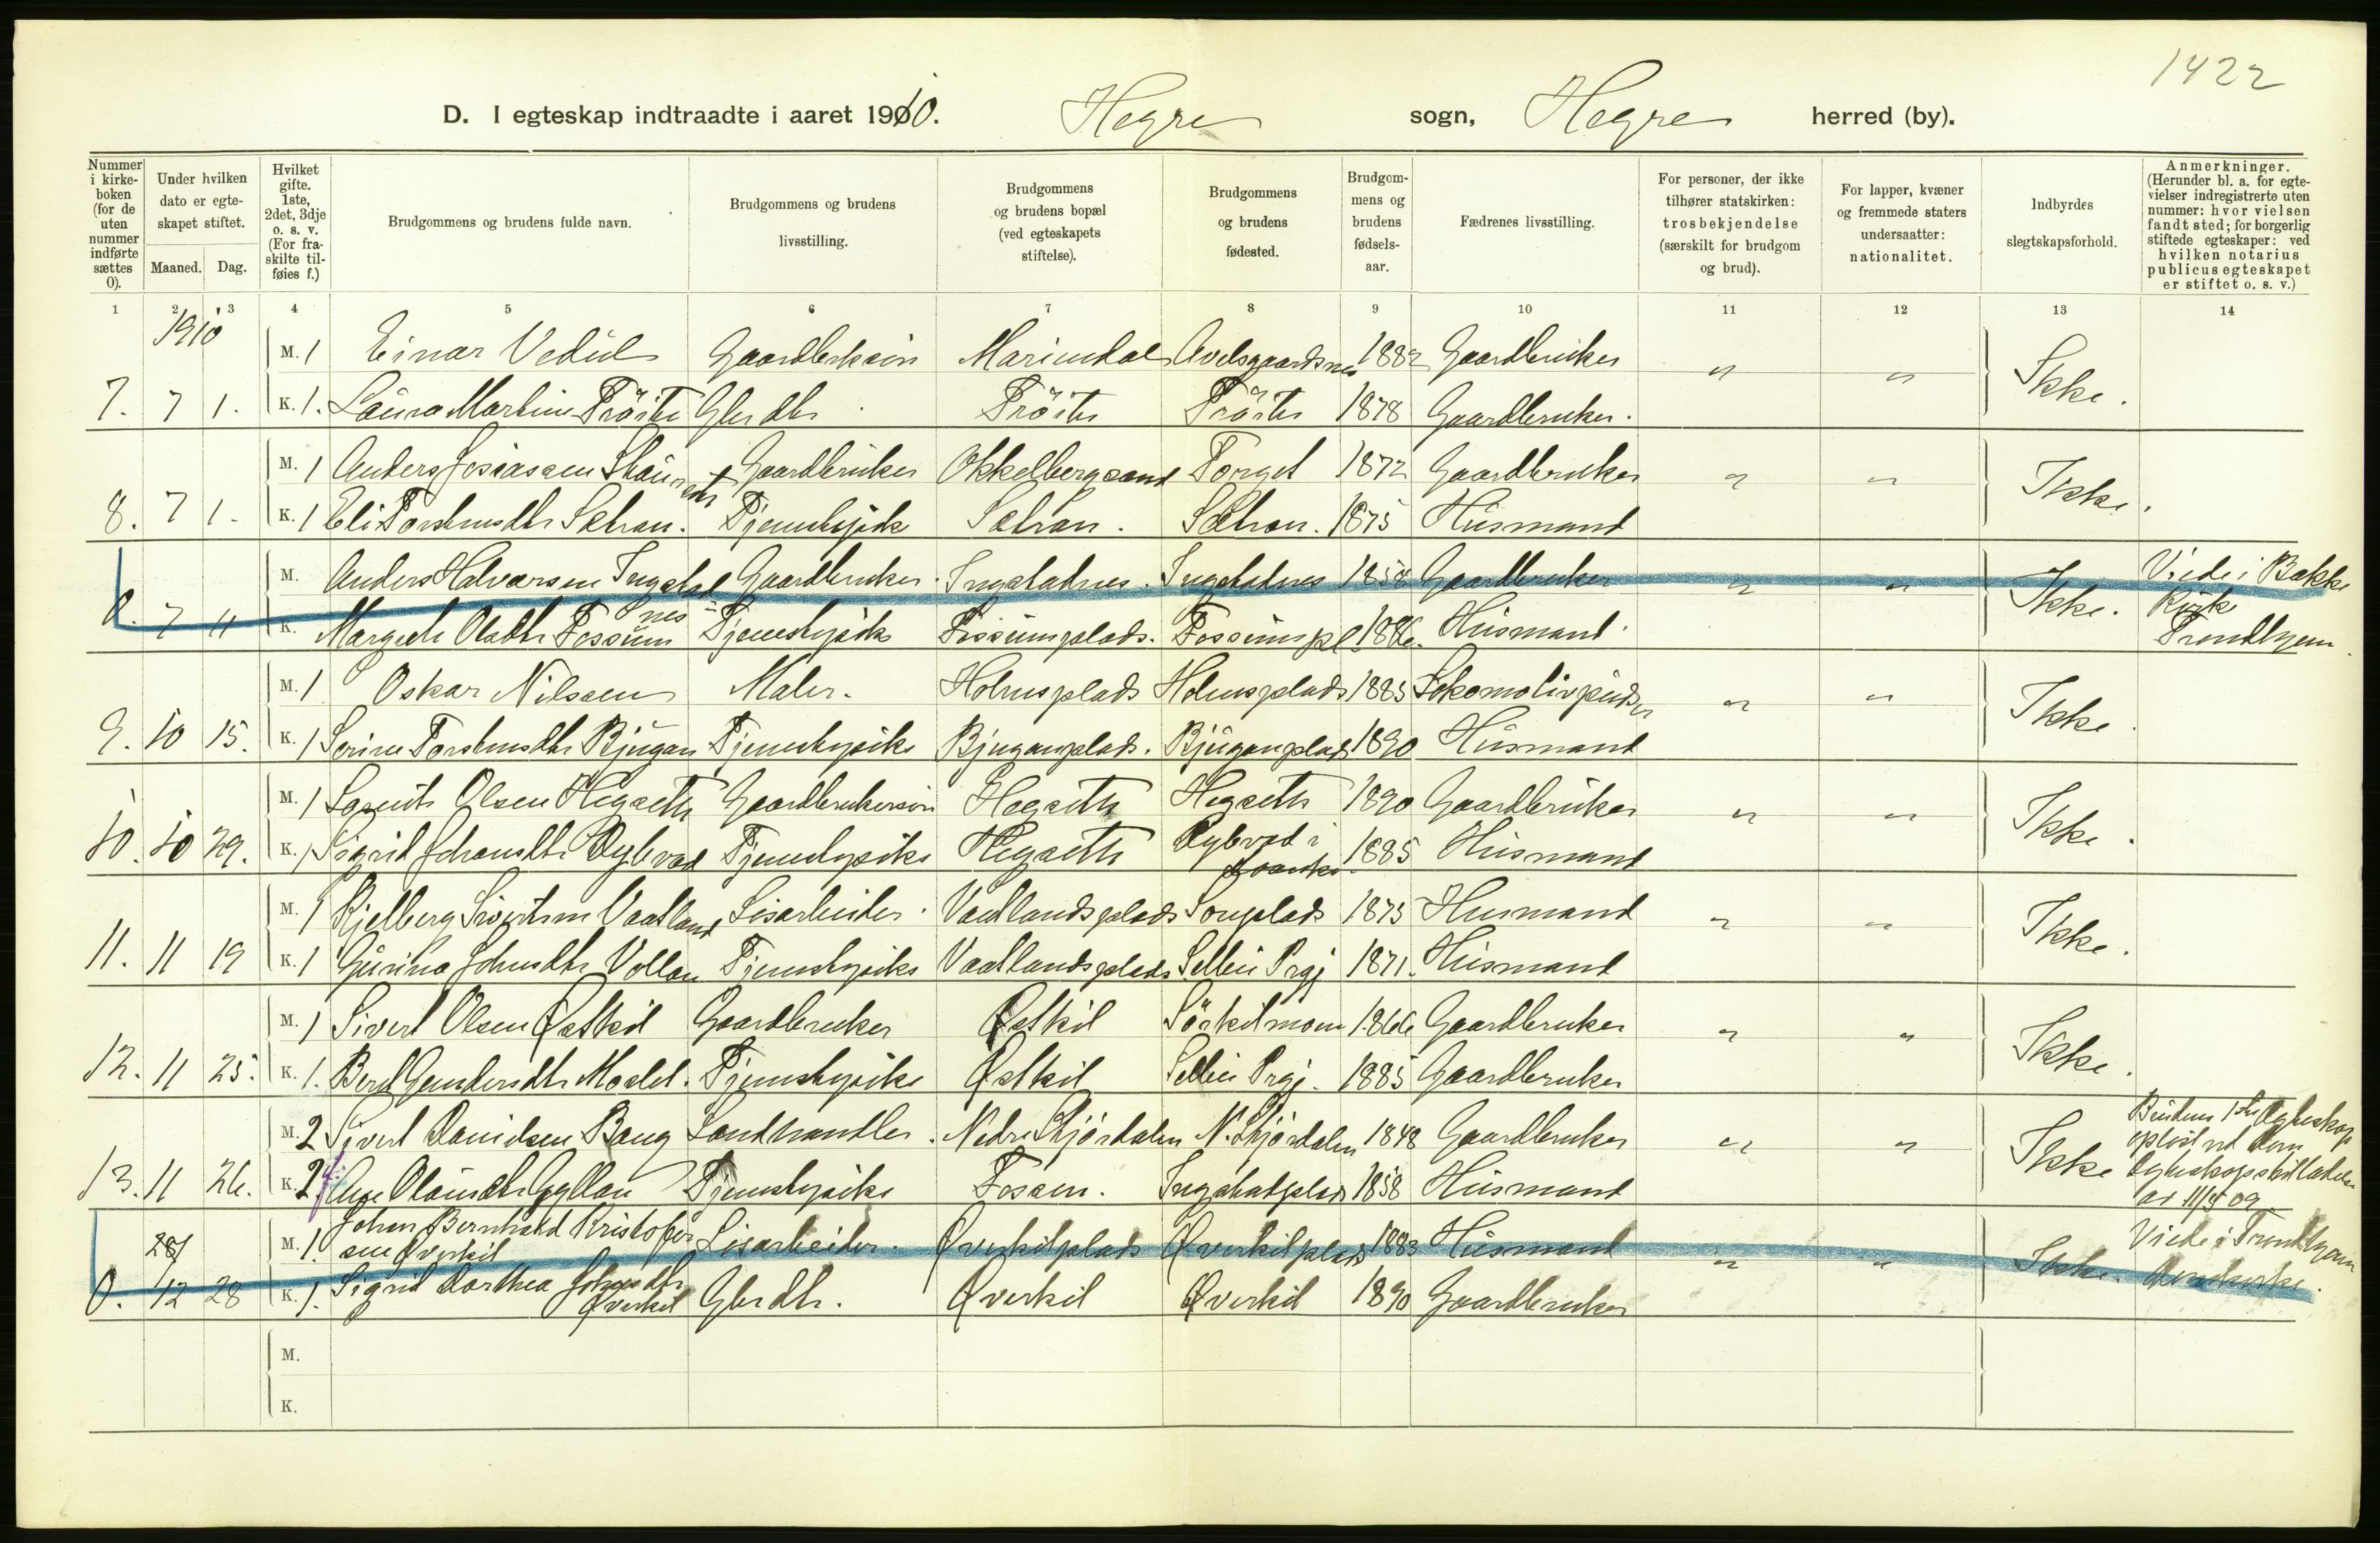 1422
D. I egteskap indtraadte i aaret 1910. Hegre sogn, Hegre herred (by).
Nummer i kirke-boken (for de uten nummer indførte sættes 0).
Under hvilken dato er egte-skapet stiftet.
Maaned. Dag.
Hvilket gifte. 1ste, 2det, 3dje o. s. v. (For fra-skilte til-føies f.)
Brudgommens og brudens fulde navn.
Brudgommens og brudens livsstilling.
Brudgommens og brudens bopæl (ved egteskapets stiftelse).
Brudgommens og brudens fødested.
Brudgom-mens og brudens fødsels-aar.
Fædrenes livsstilling.
For personer, der ikke tilhører statskirken: trosbekjendelse (særskilt for brudgom og brud).
For lapper, kvæner og fremmede staters undersaatter: nationalitet.
Indbyrdes slegtskapsforhold.
Anmerkninger. (Herunder bl. a. for egte-vielser indregistrerte uten nummer: hvor vielsen fandt sted; for borgerlig stiftede egteskaper: ved hvilken notarius publicus egteskapet er stiftet o. s. v.)
1 2 3 4 5 6 7 8 9 10 11 12 13 14
1910
M. 1 Einar Vedul Gaardbrksön Mariendal 1882 Gaardbruker " " Ikke.
7. 7 1. K. 1. Laura Martine Tröite Gbrdtr Tröite Tröite 1878 Gaardbruker.
M. 1 Anders Gaardbruker Okkelbergsand Torget 1872 Gaardbruker " " Ikke.
8. 7 1. K. 1 Eli Torstensdtr Sætran. Tjenestepike Sætran. Sætran. 1875 Husmand
M. Anders Halvarsen Ingstadnes Gaardbruker. Ingstadnes. Ingstadnes 1858 Gaardbruker " " Ikke. Viede i Bakke Kirke Trondhjem.
0. 7 11 K. Margrete Olsdtr Fossum Tjenestepike Fossumplads. Fossumpl. 1886. Husmand.
M. 1 Oskar Nilssen Maler. Holmsplads Holmsplads 1885 Lokomotivpudser " " Ikke.
9. 10 15. K. 1 Serine Torstensdtr Bjugan Tjenestepike Bjuganplads. Bjuganplads 1890 Husmand
M. 1 Laurits Olsen Hegseth Gaardbrukersön Hegseth Hegseth 1890 Gaardbruker " " Ikke.
10. 10 29. K. 1 Sigrid Johansdtr Dybvad Tjenestepike Hegseth Dybvad i 1885 Husmand
M. 1 Kjelberg Sivertsen Vaatland Løsarbeider. Vaatlandsplads Sonplads 1875 Husmand " " Ikke.
11. 11 19 K. 1 Gurina Johnsdtr Vollan Tjenestepike Vaatlandsplads Selbu Prgj 1871. Husmand
M. 1 Sivert Olsen Østkil Gaardbruker Østkil Sörkilmoen 1866 Gaardbruker " " Ikke.
12. 11 25. K. 1. Berit Gundersdtr Moslet. Tjenestepike Østkil Selbu Prgj. 1885 Gaardbruker
M. 2 Sivert Danielsen Bang Landhandler. Nedre Stjördalen N. Stjördalen 1848 Gaardbruker " " Ikke Brudens 1ste Egteskap opløst ved Egteskapsskillelse av 11/5 09
13. 11 26. K. 2 Ane Olausdtr Gyllan Tjenestepike Fossen. Ingstadplads 1858 Husmand
28/ M. 1. Johan Bernhard Kristofersen Øverkil Løsarbeider. Øverkilplads Øverkilplads 1883 Husmand " " Ikke. Viede i Trondhjem Domkirke.
0. 12 28 K. 1. Sigrid Dorthea Johnsdtr Øverkil Gbrdtr. Øverkil Øverkil 1890 Gaardbruker
M.
K.